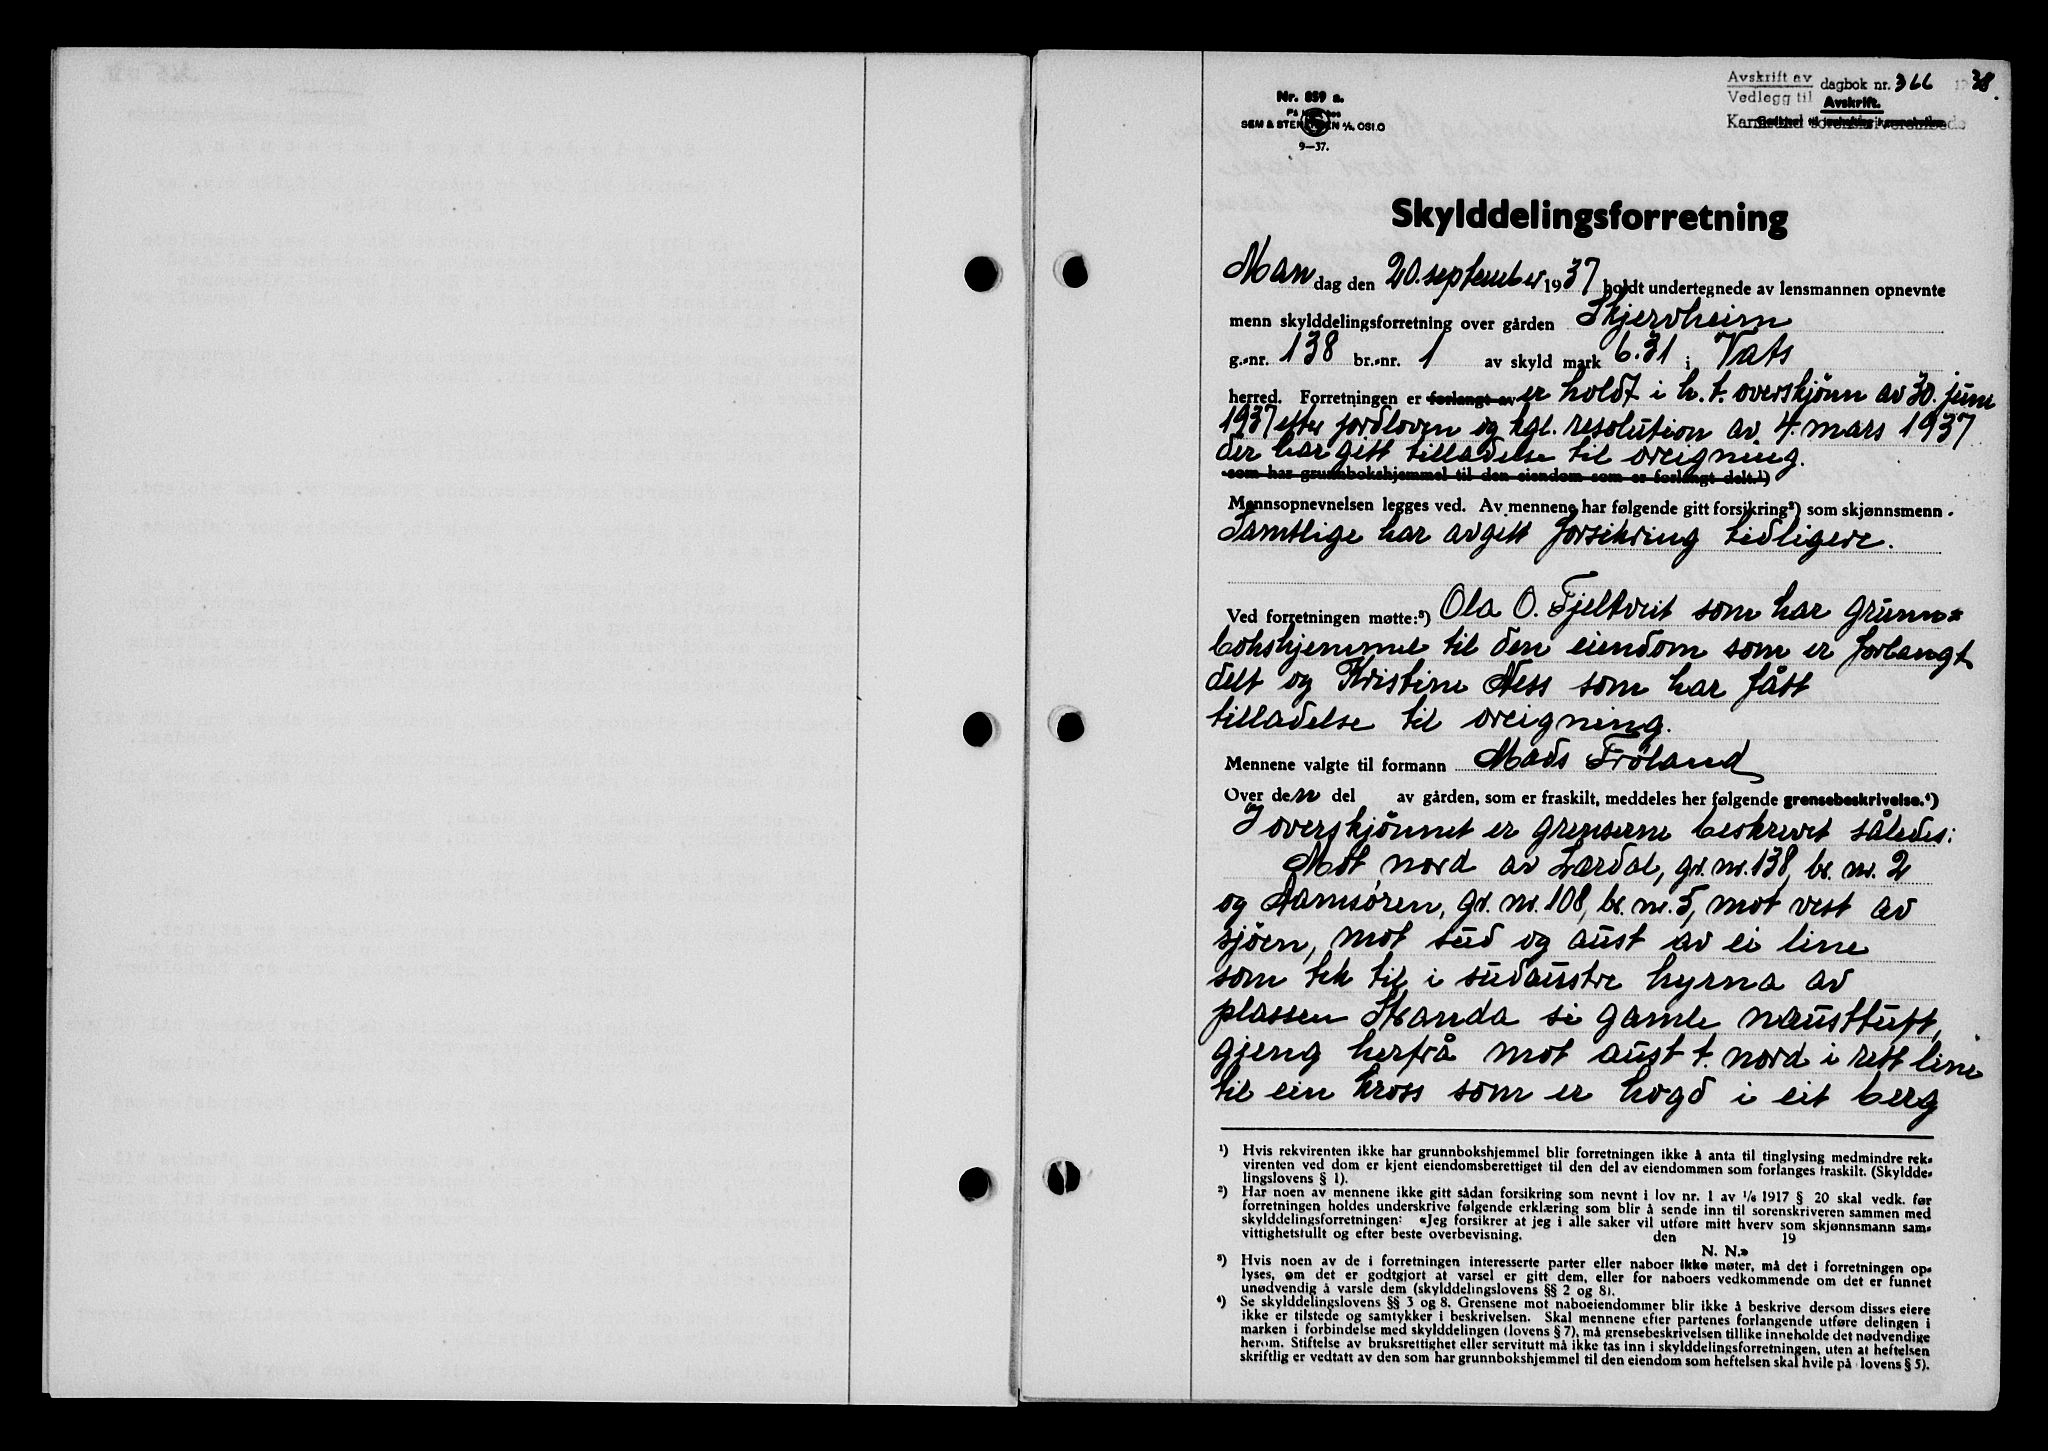 Avskrift av dagbok nr. 366 1938.
Vedlegg til Avskrift.
Nr. 859 a.
SEM & STENERSEN A/S, OSLO
9-37.
Skylddelingsforretning
Mandag den 20. september 1937 holdt undertegnede av lensmannen opnevnte
menn skylddelingsforretning over gården Skjervheim
g.-nr. 138 br.-nr. 1 av skyld mark 6.31 i Vats
herred. Forretningen er forlangt av er holdt i h. t. overskjønn av 30. juni
1937 efter jordloven og kgl. resolution av 4. mars 1937
der har gitt tilladelse til oreigning.
som har grunnbokshjemmel til den eiendom som er forlangt delt.¹)
Mennsopnevnelsen legges ved. Av mennene har følgende gitt forsikring²) som skjønnsmenn.
Samtlige har avgitt forsikring tidligere.
Ved forretningen møtte:³) Ola O. Fjeltveit som har grunn=
bokshjemmel til den eiendom som er forlangt
delt og Kristine Ness som har fått
tilladelse til oreigning.
Mennene valgte til formann Mads Frøland
Over den del av gården, som er fraskilt, meddeles her følgende grensebeskrivelse.⁴)
I overskjønnet er grenserne beskrevet således:
Mot nord av Lærdal, gr. nr. 138, br. nr. 2
og Ramsøren, gr. nr. 108, br. nr. 5, mot vest av
sjøen, mot sud og aust av ei line
som tek til i sudaustre hyrna av
plassen Stranda si gamle nausttuft,
gjeng herfrå mot aust t. nord i rett line
til ein kross som er hogd i eit berg
¹) Hvis rekvirenten ikke har grunnbokshjemmel blir forretningen ikke å anta til tinglysing medmindre rek-
virenten ved dom er kjent eiendomsberettiget til den del av eiendommen som forlanges fraskilt. (Skyldde-
lingslovens § 1).
²) Har noen av mennene ikke gitt sådan forsikring som nevnt i lov nr. 1 av 1/6 1917 § 20 skal vedk. før
forretningen holdes underskrive følgende erklæring som blir å sende inn til sorenskriveren sammen med
skylddelingsforretningen: «Jeg forsikrer at jeg i alle saker vil utføre mitt hverv som skjønnsmann sam-
vittighetsfullt og efter beste overbevisning. den 19
N. N.»
³) Hvis noen av de i forretningen interesserte parter eller naboer ikke møter, må det i forretningen op-
lyses, om det er godtgjort at varsel er gitt dem, eller for naboers vedkommende om det er funnet
unødvendig å varsle dem (skylddelingslovens §§ 2 og 8).
⁴) Se skylddelingslovens §§ 3 og 8. Grensene mot naboeiendommer blir ikke å beskrive dersom disses eiere
ikke er tilstede og samtykker i beskrivelsen. Skal mennene efter partenes forlangende utføre delingen i
marken i forbindelse med skylddelingen (lovens § 7), må grensebeskrivelsen tillike inneholde det nødvendige
herom. Stiftelse av bruksrettighet eller servitutt må ikke tas inn i skylddelingsforretningen, uten at heftelsen
skriftlig er vedtatt av den som har grunnbokshjemmel til den eiendom som heftelsen skal hvile på (lovens § 5).